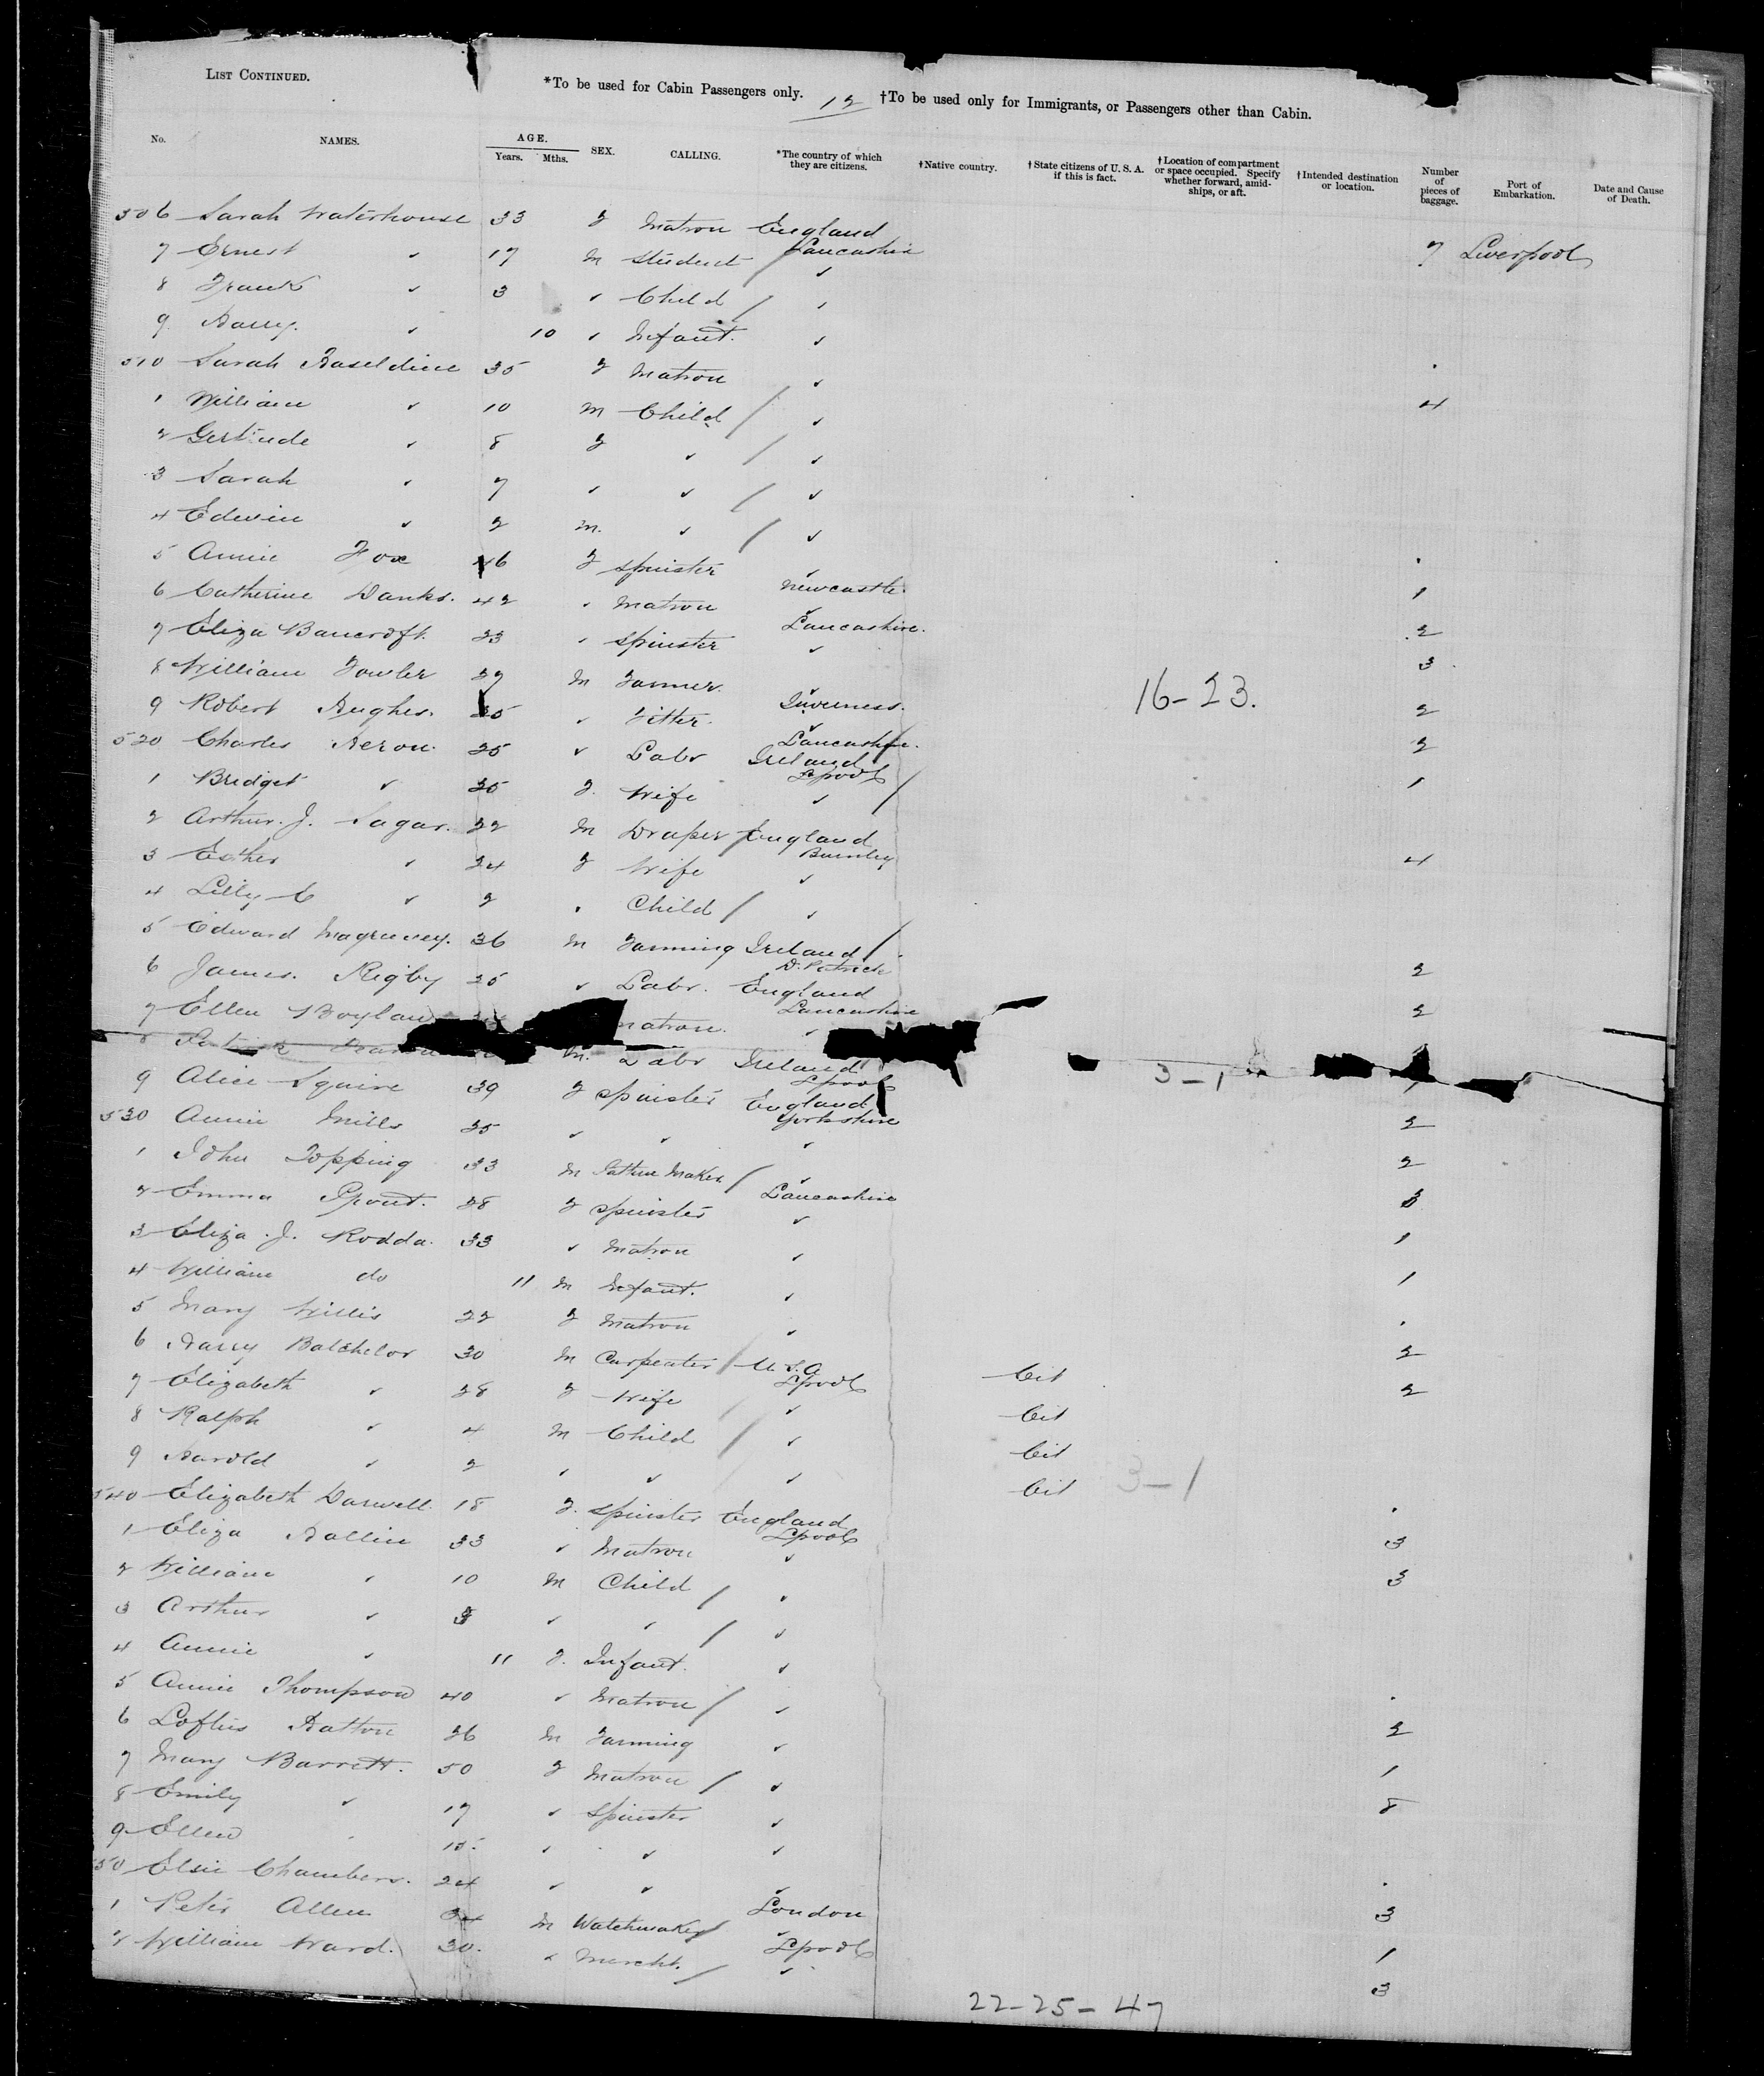 LIST CONTINUED.
*To be used for Cabin Passengers only. 12 †To be used only for Immigrants, or Passengers other than Cabin.
No. NAMES. AGE. Years. Mths. SEX. CALLING. *The country of which they are citizens. †Native country. †State citizens of U. S. A. if this is fact. †Location of compartment or space occupied. Specify whether forward, amidships, or aft. †Intended destination or location. Number of pieces of baggage. Port of Embarkation. Date and Cause of Death.
506 Sarah Waterhouse 33 F Matron England Lancashire 7 Liverpool
7 Ernest ✓ 17 M Student ✓
8 Frank ✓ 3 ✓ Child / ✓
9 Harry. ✓ 10 ✓ Infant. ✓
510 Sarah Haseldine 35 F Matron ✓ 4
1 William ✓ 10 M Child / ✓
2 Gertrude ✓ 8 F ✓ / ✓
3 Sarah ✓ 7 ✓ ✓ / ✓
4 Edwin ✓ 2 M. ✓ / ✓
5 Annie Fox 6 F Spinster ✓ Newcastle 1
6 Catherine Danks. 42 ✓ Matron ✓ Lancashire. 2
7 Eliza Bancroft. 23 ✓ Spinster ✓ 3
8 William Fowler 27 M Farmer. ✓ Inverness. 16-23. 2
9 Robert Hughes. 25 ✓ Fitter. ✓ Lancashire. 2
520 Charles Heron. 25 ✓ Labr Ireland Lpool 1
1 Bridget ✓ 25 F. Wife ✓ /
2 Arthur. J. Sagar. 22 M Draper England Burnley 4
3 Esther ✓ 24 F Wife ✓
4 Lilly C ✓ 2 ✓ Child / ✓
5 Edward 36 M Farming Ireland / D. Patrick 2
6 James. Rigby 25 ✓ Labr. England Lancashire 2
7 Ellen Boylan atron. ✓
8 M. Labr Ireland Lpool 3-1
9 Alice Squire 39 F Spinster England Yorkshire 2
530 Annie Mills 25 ✓ ✓ ✓ 2
1 John Topping 33 M Pattern Maker / ✓ Lancashire 3
2 Emma Spout. 28 F Spinster ✓ 1
3 Eliza. J. Rodda. 33 ✓ Matron ✓ 1
4 William do 11 M Infant. ✓
5 Mary Willis 22 F Matron ✓ 2
6 Harry Batchelor 30 M Carpenter / U.S.A Lpool Cit 2
7 Elizabeth ✓ 28 F Wife / ✓ Cit
8 Ralph ✓ 4 M Child / ✓ Cit
9 Harold ✓ 2 ✓ ✓ ✓ Cit 3-1
540 Elizabeth Darwell. 18 F. Spinster England Lpool 3
1 Eliza Hallin 33 ✓ Matron ✓ 3
2 William ✓ 10 M Child / ✓
3 Arthur ✓ ✓ ✓ / ✓
4 Annie ✓ 11 F. Infant. ✓
5 Annie Thompson 40 ✓ Matron / ✓ 2
6 Loftus Hatton 26 M Farming ✓ 1
7 Mary Barrett. 50 F Matron / ✓ 8
8 Emily ✓ 17 ✓ Spinster ✓
9 Ellen ✓ 15 ✓ ✓ ✓
50 Elsie Chambers. 24 ✓ ✓ ✓ London 3
1 Peter Allen M Watchmaker Lpool 1
2 William Ward. 30. ✓ Mercht. / ✓ 3
22-25-47